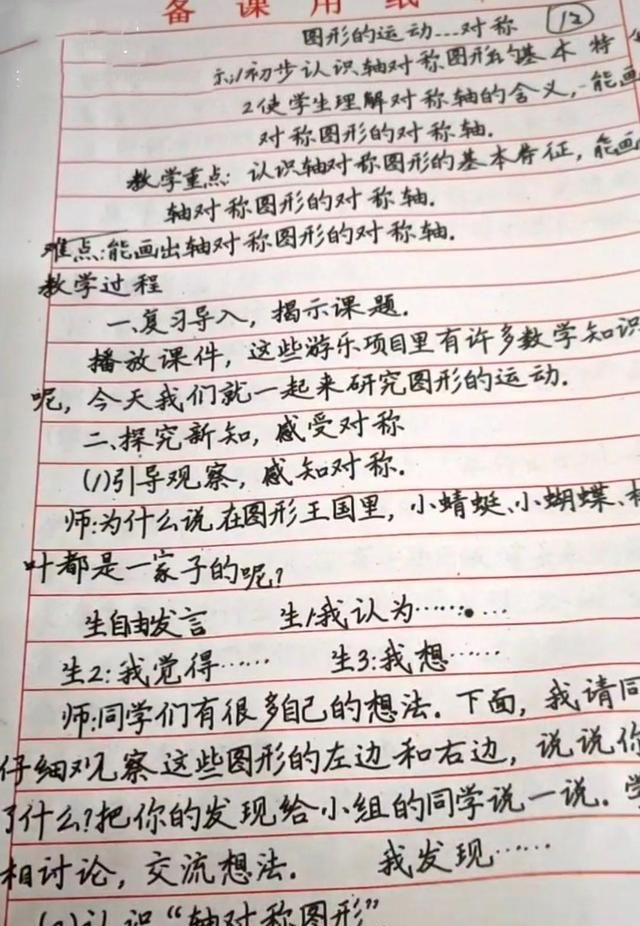 备课用纸
图形的运动…对称 12
1初步认识轴对称图形的基本特
2使学生理解对称轴的含义,能画
对称图形的对称轴.
教学重点:认识轴对称图形的基本特征,能画
轴对称图形的对称轴.
难点:能画出轴对称图形的对称轴.
教学过程
一、复习导入,揭示课题.
播放课件,这些游乐项目里有许多数学知识
呢,今天我们就一起来研究图形的运动.
二、探究新知,感受对称
(1)引导观察,感知对称.
师:为什么说在图形王国里,小蜻蜓、小蝴蝶、
叶都是一家子的呢?
生自由发言 生1:我认为……
生2:我觉得…… 生3:我想……
师:同学们有很多自己的想法.下面,我请同
仔细观察这些图形的左边和右边,说说你
了什么?把你的发现给小组的同学说一说.学
相讨论,交流想法. 我发现……
(2)认识“轴对称图形”